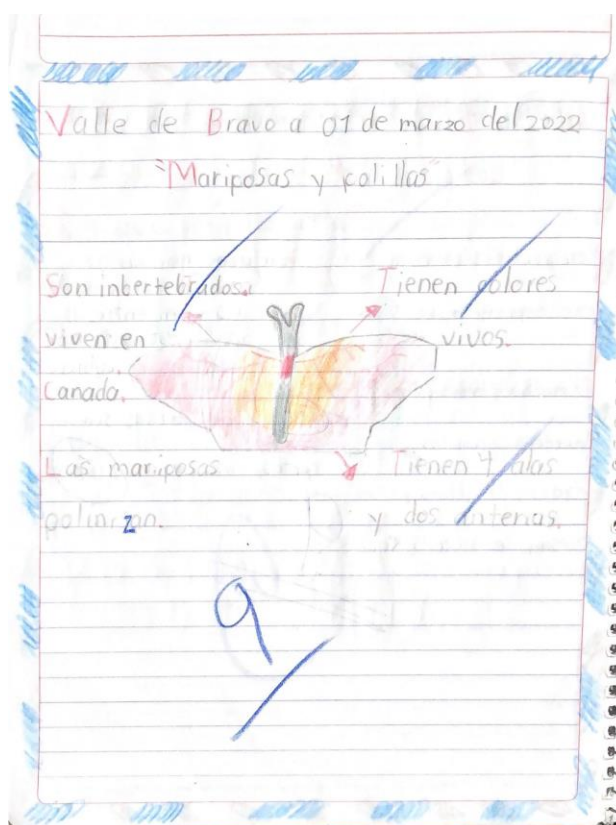 Valle de Bravo a 01 de marzo del 2022
"Mariposas y polillas"
Son intertebrados.
viven en
Canada.
Tienen colores
vivos.
Las mariposas
polinizan.
Tienen 4 alas
y dos antenas.
9